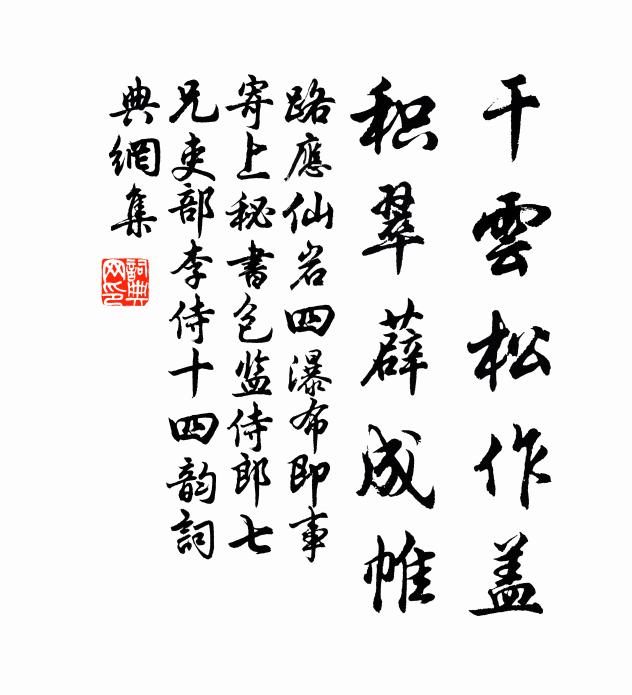 干雲松作盖
积翠薜成帷
路應仙岩四瀑布即事
寄上秘書包监侍郎七
兄吏部李侍十四韵詞
典網集
詞典
网印